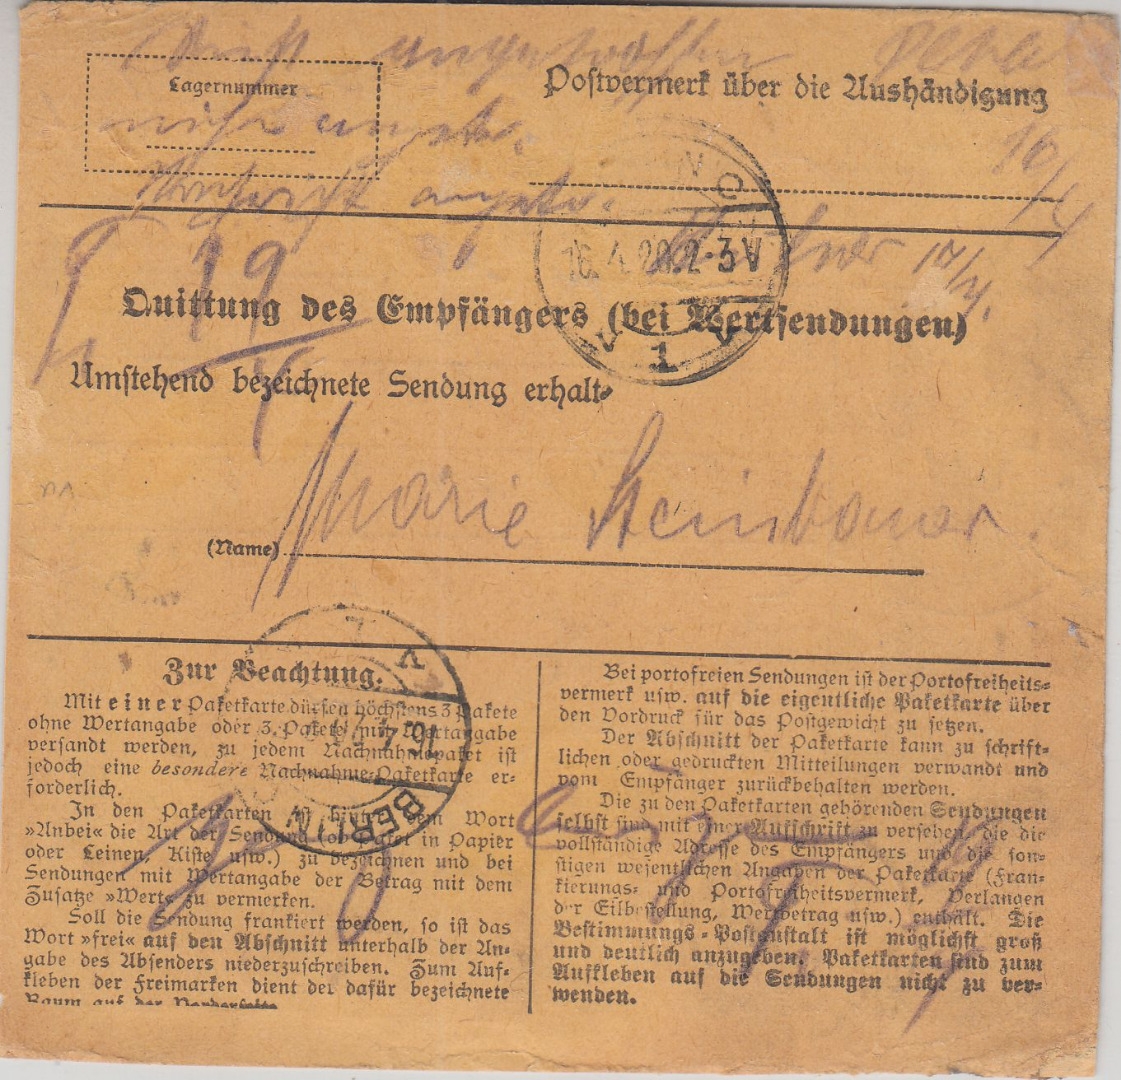 nicht angetroffen
Lagernummer
Postvermerk über die Aushändigung
16/4
17/4.
19
4
16.4.20.2-3V
1
Quittung des Empfängers (bei Wertsendungen)
Umstehend bezeichnete Sendung erhalt-
Marie Steinbauer.
(Name)
16.4.
BERLIN
Zur Beachtung.
Mit einer Paketkarte dürfen höchstens 3 Pakete
ohne Wertangabe oder 3 Pakete mit Wertangabe
versandt werden, zu jedem Nachnahmepaket ist
jedoch eine besondere Nachnahme-Paketkarte er-
forderlich.
In den Paketkarten ist hinter dem Wort
»Anbei« die Art der Sendung (ob Paket in Papier
oder Leinen, Kiste usw.) zu bezeichnen und bei
Sendungen mit Wertangabe der Betrag mit dem
Zusatze »Wert« zu vermerken.
Soll die Sendung frankiert werden, so ist das
Wort »frei« auf den Abschnitt unterhalb der An-
gabe des Absenders niederzuschreiben. Zum Auf-
kleben der Freimarken dient der dafür bezeichnete
Raum auf der Vorderseite
Bei portofreien Sendungen ist der Portofreiheits-
vermerk usw. auf die eigentliche Paketkarte über
den Vordruck für das Postgewicht zu setzen.
Der Abschnitt der Paketkarte kann zu schrift-
lichen oder gedruckten Mitteilungen verwandt und
vom Empfänger zurückbehalten werden.
Die zu den Paketkarten gehörenden Sendungen
selbst sind mit einer Aufschrift zu versehen, die die
vollständige Adresse des Empfängers und die son-
stigen wesentlichen Angaben der Paketkarte (Fran-
kierungs- und Portofreiheitsvermerk, Verlangen
der Eilbestellung, Wertbetrag usw.) enthält. Die
Bestimmungs-Postanstalt ist möglichst groß
und deutlich anzugeben. Paketkarten sind zum
Aufkleben auf die Sendungen nicht zu ver-
wenden.